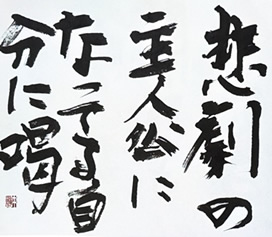 悲劇の
主人公に
なってる自
分に喝